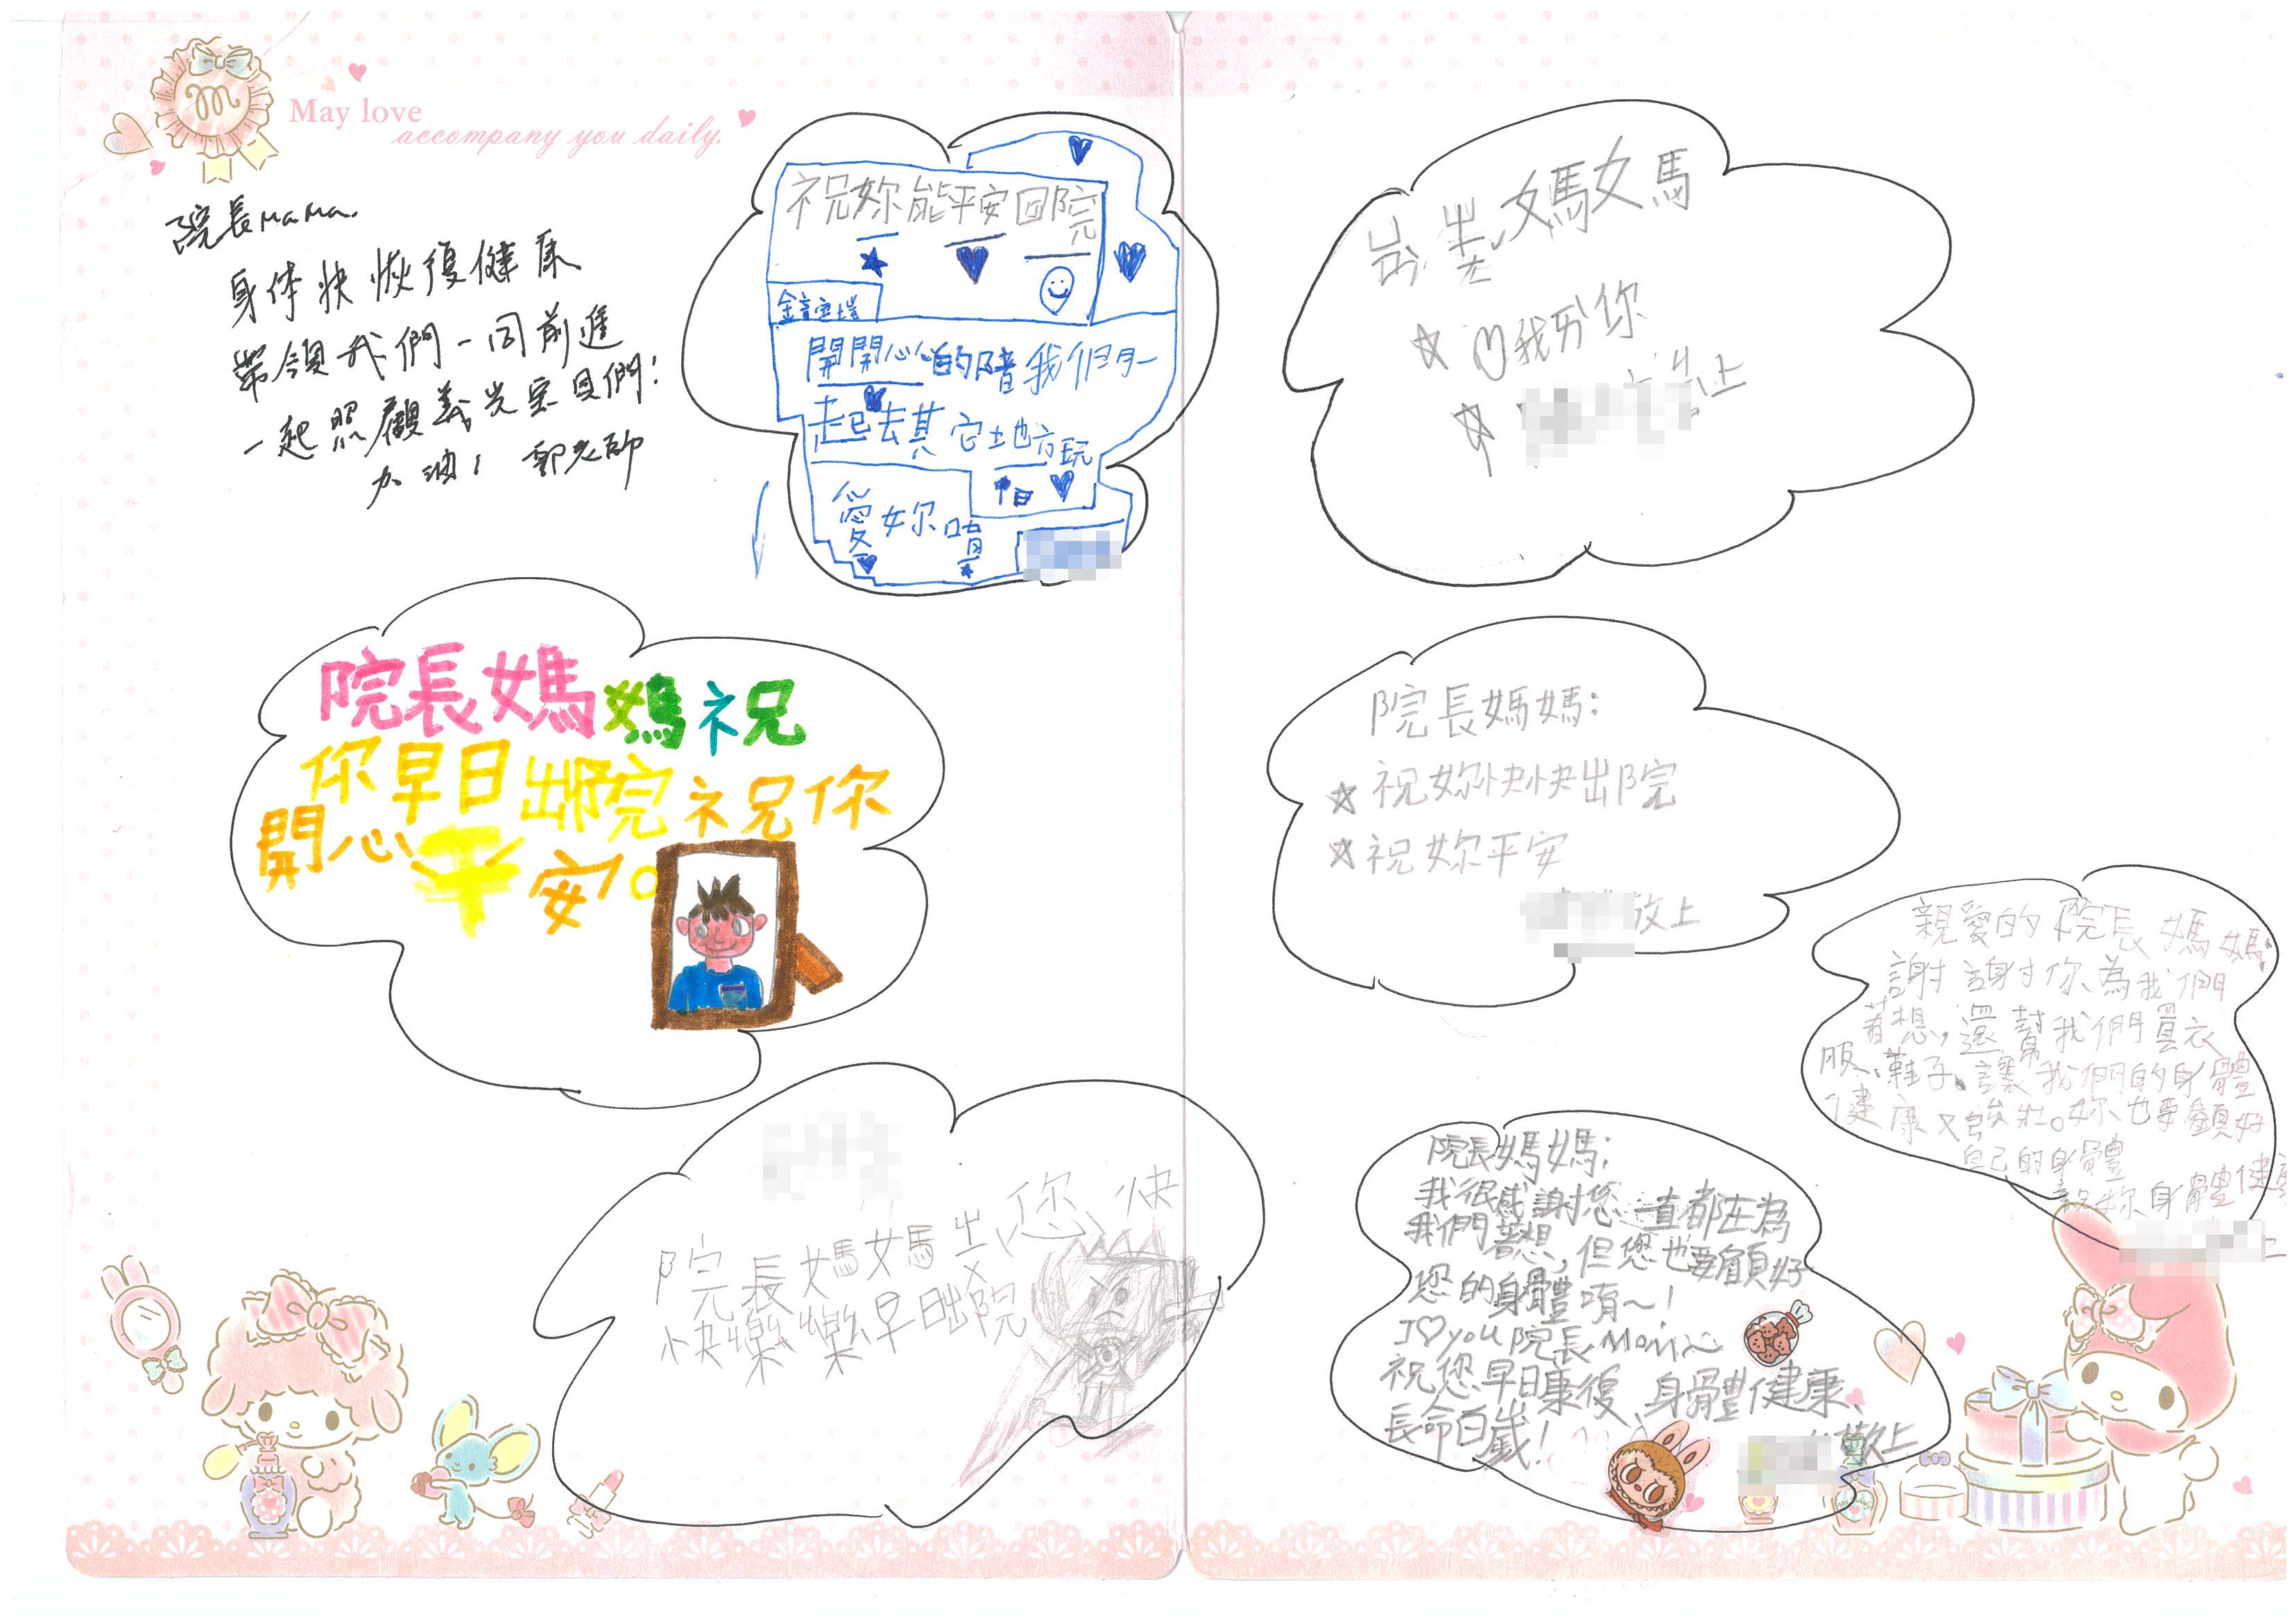 May love
accompany you daily.
院長MaMa.
身体快恢復健康
帶領我們一同前進
一起照顧義光寶貝們!
加油! 郭老師
祝妳能平安回院
開開心心的陪我們
一起去其它地方玩
愛妳唷
院長媽媽祝
你早日出院祝你
開心平安。
院長媽媽 您 快
快樂樂早日出院
媽媽
我 你
上
院長媽媽:
祝妳快快出院
祝妳平安
敬上
親愛的院長媽媽:
謝謝你為我們
著想,還幫我們買衣
服、鞋子、讓我們的身體
健康又強壯。妳也要顧好
自己的身體
祝妳身體健康
上
院長媽媽:
我很感謝您一直都在為
我們著想,但您也要顧好
您的身體唷~!
I♡you院長Mom~
祝您早日康復、身體健康、
長命百歲!
敬上